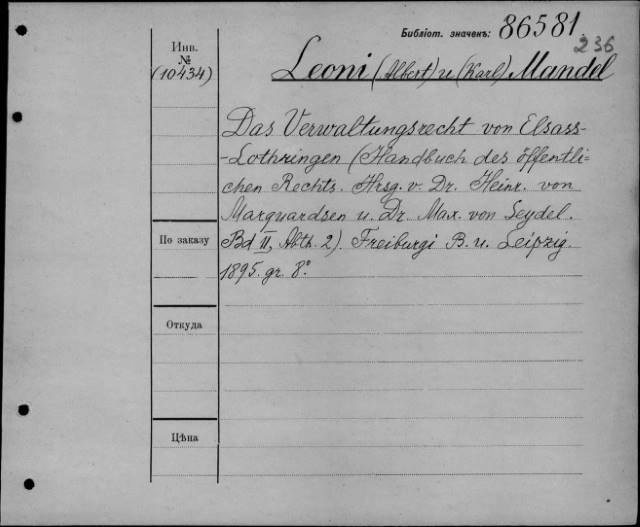 Библіот. значекъ: 86581
236
Инв.
№
(10434)
Leoni (Albert) u (Karl) Mandel
Das Verwaltungsrecht von Elsass-
-Lothringen (Handbuch des öffentli=
chen Rechts. Hrsg. v. Dr. Heinr. von
Marquardsen u. Dr. Max. von Seydel.
Bd II, Abth. 2). Freiburg i B. u. Leipzig.
1895. gr. 8°
По заказу
Откуда
Цѣна